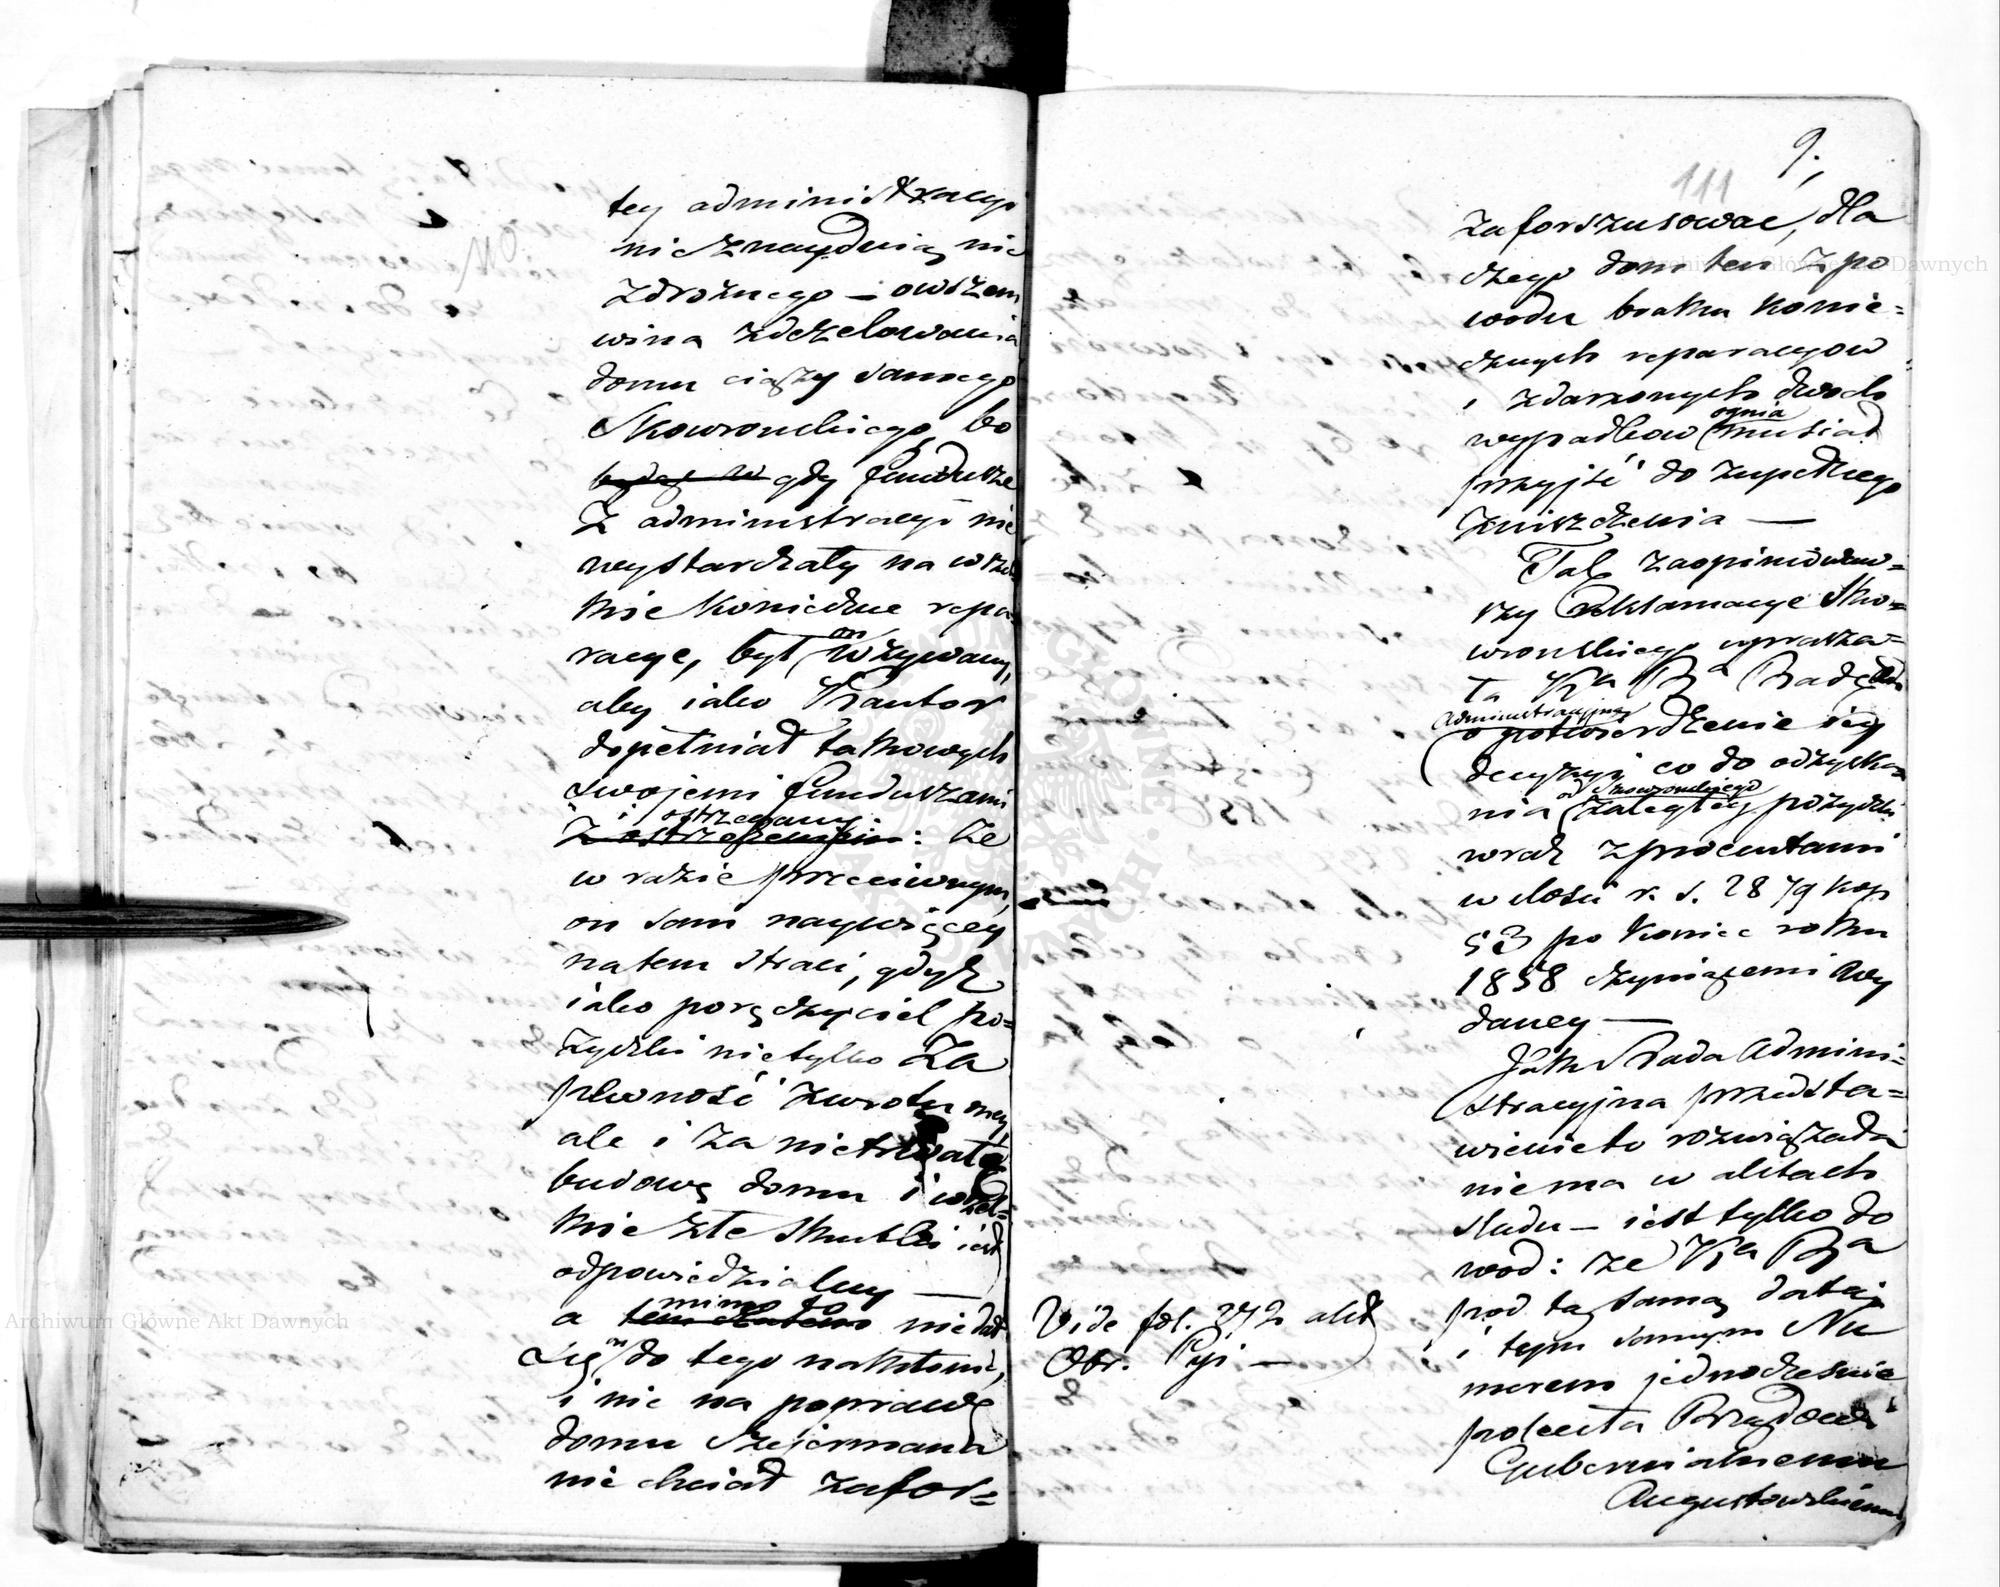 tey administracyi
nic znayduią nic
zdrożnego — owszem
wina zdezelowania
domu ciąży samego
Skowrońskiego, bo
gdy fundusze
z administracyi nie
wystarczały na wszel
kie konieczne repa
racye, był on wzywany,
aby iako Kantor
dopełniał takowych
swojemi funduszami
i ostrzegany
z ostrzeżeniem: że
w razie przeciwnym,
on sam naywięcey
na tem straci, gdyż
iako poręczyciel po=
życzki nietylko za
pewność zwrotu oney,
ale i za nietrwałą
budowę domu i wszel=
kie złe skutki iest
odpowiedzialny —
mimo to
a nie dał
się on do tego nakłonić,
i nic na poprawę
domu Szejermana
nie chciał zafor=
110
9.
111
zaforszusować, dla
czego dom ten z po
wodu braku konie=
cznych reparacyow
i zdarzonych dwóch
wypadków ognia musiał
przyjść do zupełnego
zniszczenia —
Tak zaopiniowaw=
szy reklamacye Sko=
wrońskiego uprasza=
ła Kᵃ Rᵃ Radę
Administracyjną
o potwierdzenie iey
decyzyi co do odzyska=
nia od Skowrońskiego zaległey pożyczki
wraz z procentami
w ilości r. s. 2879 kop
53 po koniec roku
1858 czyniącemi Wy
daney —
Jak Rada Admini=
stracyjna przedsta=
wienie to rozwiązała
nie ma w aktach
śladu — iest tylko do
wod: że Kᵃ Rᵃ
pod tą samą datą
i tym samym Nu
merem jednocześnie
poleciła Rządowi
Gubernialnemu
Augustowskiemu
Vide fol. 272 akt
Obr. Pyi —